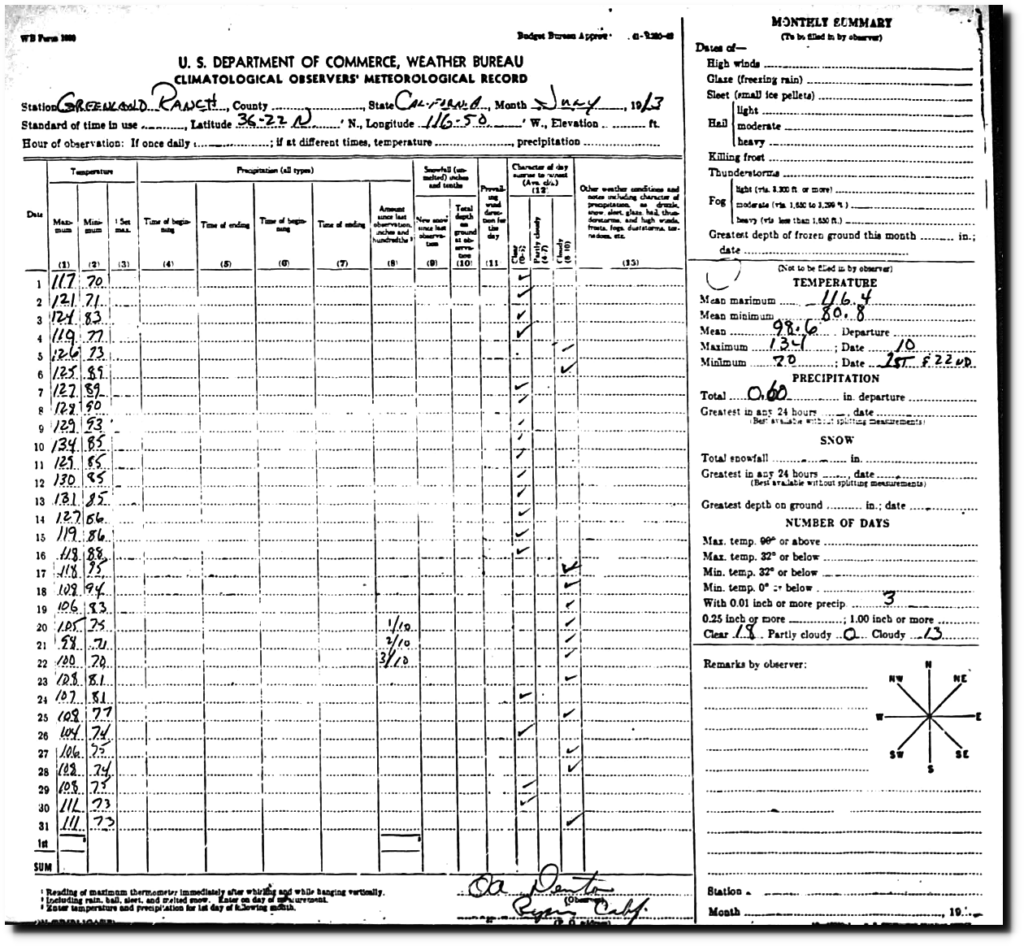 WB Form 1009
Budget Bureau
U. S. DEPARTMENT OF COMMERCE, WEATHER BUREAU
CLIMATOLOGICAL OBSERVERS' METEOROLOGICAL RECORD
Station GREENLAND RANCH, County, State CALIFORNIA, Month JULY, 1913
Standard of time in use, Latitude 36-22 N ' N., Longitude 116-50 ' W., Elevation ft.
Hour of observation: If once daily ; if at different times, temperature, precipitation
Temperature Precipitation (all types) Snowfall (unmelted) inches and tenths Prevailing wind direction for the day Character of day sunrise to sunset (12) Other weather conditions and notes including character of precipitation, as drizzle, snow, sleet, glaze, hail, thunderstorms, and high winds, frosts, fogs, duststorms, tornadoes, etc.
Date Maximum Minimum Set max. Time of beginning Time of ending Time of beginning Time of ending Amount since last observation, inches and hundredths New snow since last observation Total depth on ground at observation Clear (0-3) Partly cloudy (4-7) Cloudy (8-10)
(1) (2) (3) (4) (5) (6) (7) (8) (9) (10) (11) (13)
1 117 70 ✓
2 121 71 ✓
3 124 83 ✓
4 119 77 ✓
5 126 73 ✓
6 125 89 ✓
7 127 89 ✓
8 128 90 ✓
9 129 93 ✓
10 134 85 ✓
11 129 85 ✓
12 130 85 ✓
13 131 85 ✓
14 127 86 ✓
15 119 86 ✓
16 118 88 ✓
17 118 95 ✓
18 108 94 ✓
19 106 83 ✓
20 105 75 1/10 ✓
21 98 71 2/10 ✓
22 100 70 3/10 ✓
23 108 81 ✓
24 107 81 ✓
25 108 77 ✓
26 104 74 ✓
27 106 75 ✓
28 108 74 ✓
29 108 75 ✓
30 111 73 ✓
31 111 73 ✓
1st
SUM
¹ Reading of maximum thermometer immediately after whirling and while hanging vertically.
² Including rain, hail, sleet, and melted snow. Enter on day of measurement.
³ Enter temperature and precipitation for 1st day of following month.
Oa Denton
(Observer)
Ryan Calif.
MONTHLY SUMMARY
(To be filled in by observer)
Dates of—
High winds
Glaze (freezing rain)
Sleet (small ice pellets)
Hail
light
moderate
heavy
Killing frost
Thunderstorms
Fog
light (vis. 3,300 ft or more)
moderate (vis. 1,650 to 3,299 ft.)
heavy (vis less than 1,650 ft.)
Greatest depth of frozen ground this month in.;
date
(Not to be filled in by observer)
TEMPERATURE
Mean maximum 116.4
Mean minimum 80.8
Mean 98.6 Departure
Maximum 134 ; Date 10
Minimum 70 ; Date 1ST & 22ND
PRECIPITATION
Total 0.60 in. departure
Greatest in any 24 hours, date
(Best available without splitting measurements)
SNOW
Total snowfall in.
Greatest in any 24 hours, date
(Best available without splitting measurements)
Greatest depth on ground in.; date
NUMBER OF DAYS
Max. temp. 90° or above
Max. temp. 32° or below
Min. temp. 32° or below
Min. temp. 0° or below
With 0.01 inch or more precip 3
0.25 inch or more ; 1.00 inch or more
Clear 18 Partly cloudy 0 Cloudy 13
Remarks by observer:
N
NW NE
W E
SW SE
S
Station
Month, 19